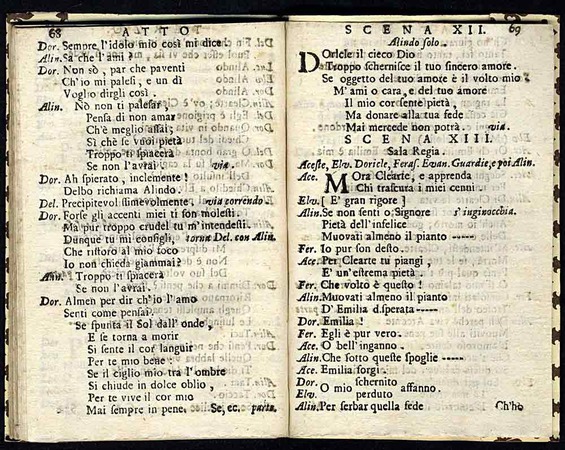 68 ATTO
Dor. Sempre l'idolo mio così mi dice.
Alin. Sà che l'ami?
Dor. Non sò, par che paventi
Ch'io mi palesi, e un dì
Voglio dirgli così.
Alin. Nò non ti palesar,
Pensa di non amar
Ch'è meglio assai;
Sì chè se vuoi pietà
Troppo ti spiacerà
Se non l'avrai. via.
Dor. Ah spierato, inclemente!
Delbo richiama Alindo.
Del. Precipitevolissimevolmente. via correndo
Dor. Forse gli accenti miei ti son molesti.
Ma pur troppo crudel tu m'intendesti.
Dunque tu mi consigli, torna Del. con Alin.
Che ristoro al mio foco
Io non chieda giammai?
Alin. Troppo ti spiacerà
Se non l'avrai.
Dor. Almen per dir ch'io l'amo
Senti come pensai.
Se spunta il Sol dall'onde,
E se torna a morir
Si sente il cor languir
Per te mio bene:
Se il ciglio mio tra l'ombre
Si chiude in dolce oblio,
Per te vive il cor mio
Mai sempre in pene. Se, ec. parta.
SCENA XII. 69
Alindo solo.
DOricle il cieco Dio
Troppo schernisce il tuo sincero amore.
Se oggetto del tuo amore è il volto mio
M'ami o cara, e del tuo amore
Il mio cor sente pietà,
Ma donare alla tua fede
Mai mercede non potrà. via.
SCENA XIII.
Sala Regia.
Aceste, Elv. Doricle, Feras. Evan. Guardie, e poi Alin.
Ace. MOra Clearte, e apprenda
Chi trascura i miei cenni.
Elv. [E' gran rigore]
Alin. Se non senti o Signore s'inginocchia.
Pietà dell'infelice
Muovati almeno il pianto -----
Fer. Io pur son desto.
Ace. Per Clearte tu piangi,
E' un'estrema pietà.
Fer. Che volto è questo!
Alin. Muovati almeno il pianto
D'Emilia disperata -----
Dor. Emilia!
Fer. Egli è pur vero.
Ace. O bell'inganno.
Alin. Che sotto queste spoglie -----
Ace. Emilia sorgi.
Dor. schernito
O mio affanno.
Elv. perduto
Alin. Per serbar quella fede Ch'ho